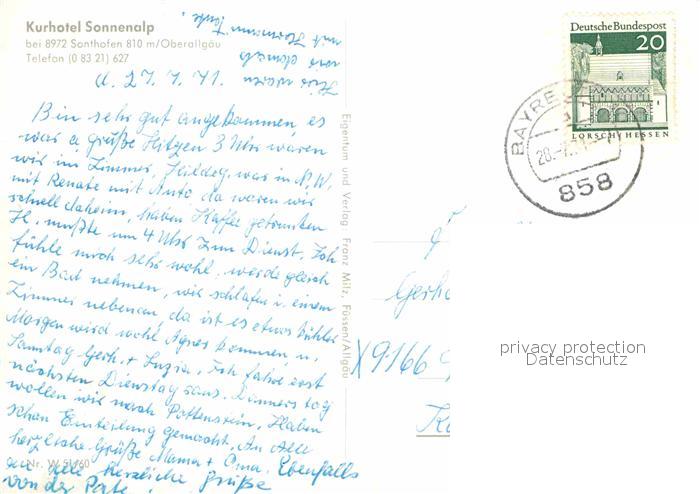 Kurhotel Sonnenalp
bei 8972 Sonthofen 810 m/Oberallgäu
Telefon (0 83 21) 627
d. 27.7.71.
Bin sehr gut angekommen, es
war a größe Hitzen 3 Uhr waren
wir im Zimmer, Hildeg. war in N.W.
mit Renate mit Auto da waren wir
schnell daheim, haben Kaffee getrunken
H. mußte um 4 Uhr zum Dienst. Ich
fühle mich sehr wohl, werde gleich
ein Bad nehmen, wir schlafen i. einem
Zimmer nebenan da ist es etwas kühler
Morgen wird wohl Agnes kommen, u.
Samstag Gerh. + Luzia. Ich fahre erst
nächsten Dienstag Donnerstag
wollen wir nach Pottenstein. Haben
schon Einteilung gemacht. An Alle
herzliche Grüße Mama + Oma. Ebenfalls
viele herzliche Grüße
von der Pate.
Nr. W 5/60
Eigentum und Verlag Franz Milz, Füssen/Allgäu
Deutsche Bundespost
20
LORSCH/HESSEN
BAYRE
28.-7.71
858
Gerh
X 9166
privacy protection
Datenschutz